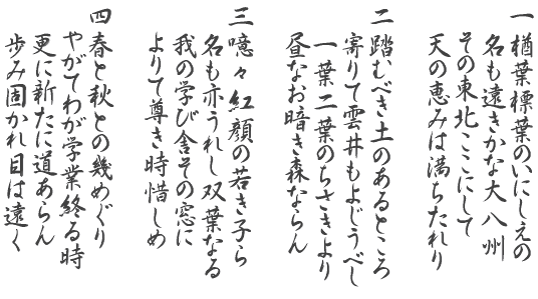 一 楢葉標葉のいにしえの
名も遠きかな大八州
その東北ここにして
天の恵みは満ちたれり
二 踏むべき土のあるところ
寄りて雲井もよじうべし
一葉二葉のちさきより
昼なお暗き森ならん
三 噫々紅顔の若き子ら
名も亦うれし双葉なる
我の学び舎その窓に
よりて尊き時惜しめ
四 春と秋との幾めぐり
やがてわが学業終る時
更に新たに道あらん
歩み固かれ目は遠く